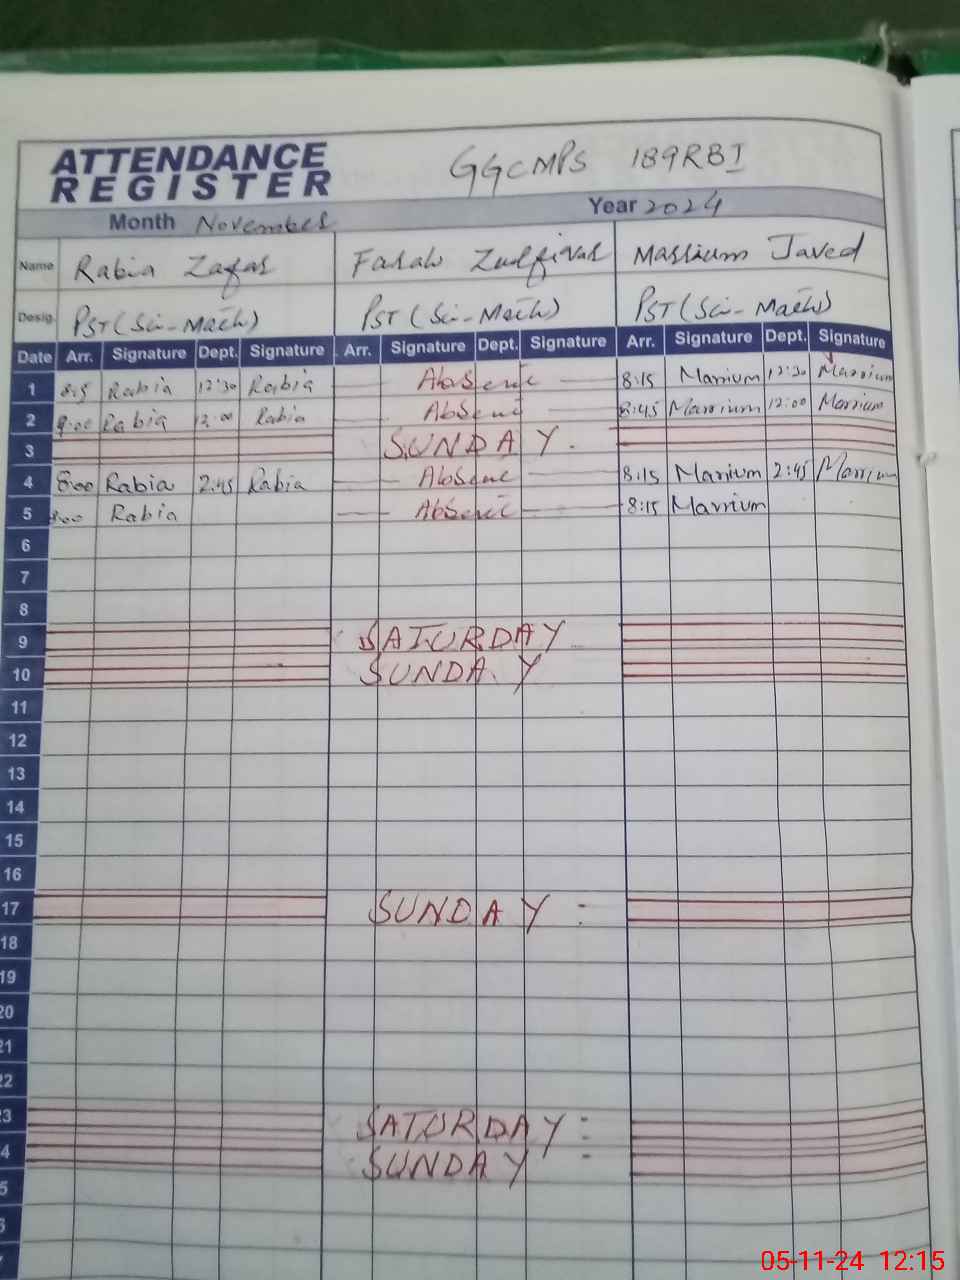 ATTENDANCE REGISTER GGCMPS 189RBI
Month November Year 2024
Name Rabia Zafar Farah Zulfiqar Marrium Javed
Desig. PST (Sci-Math) PST (Sci-Math) PST (Sci-Math)
Date Arr. Signature Dept. Signature Arr. Signature Dept. Signature Arr. Signature Dept. Signature
1 Rabia 12:30 Rabia Absent 8:15 Marrium 12:30 Marrium
2 Rabia 12:00 Rabia Absent 8:45 Marrium 12:00 Marrium
3 SUNDAY.
4 8:00 Rabia 2:45 Rabia Absent 8:15 Marrium 2:45 Marrium
5 Rabia Absent 8:15 Marrium
6
7
8
9 SATURDAY
10 SUNDAY
11
12
13
14
15
16
17 SUNDAY :
18
19
20
21
22
3 SATURDAY :
4 SUNDAY -
5
6
7
05-11-24 12:15